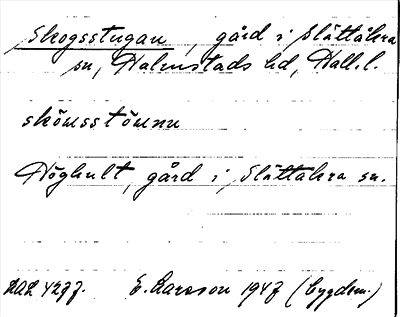 Skogsstugan, gård i Slättåkra
sn, Halmstads hd, Hall. l.
sköusstöunu
Höghult, gård i Slättåkra sn.
E. Larsson 1947 (bygdem.)